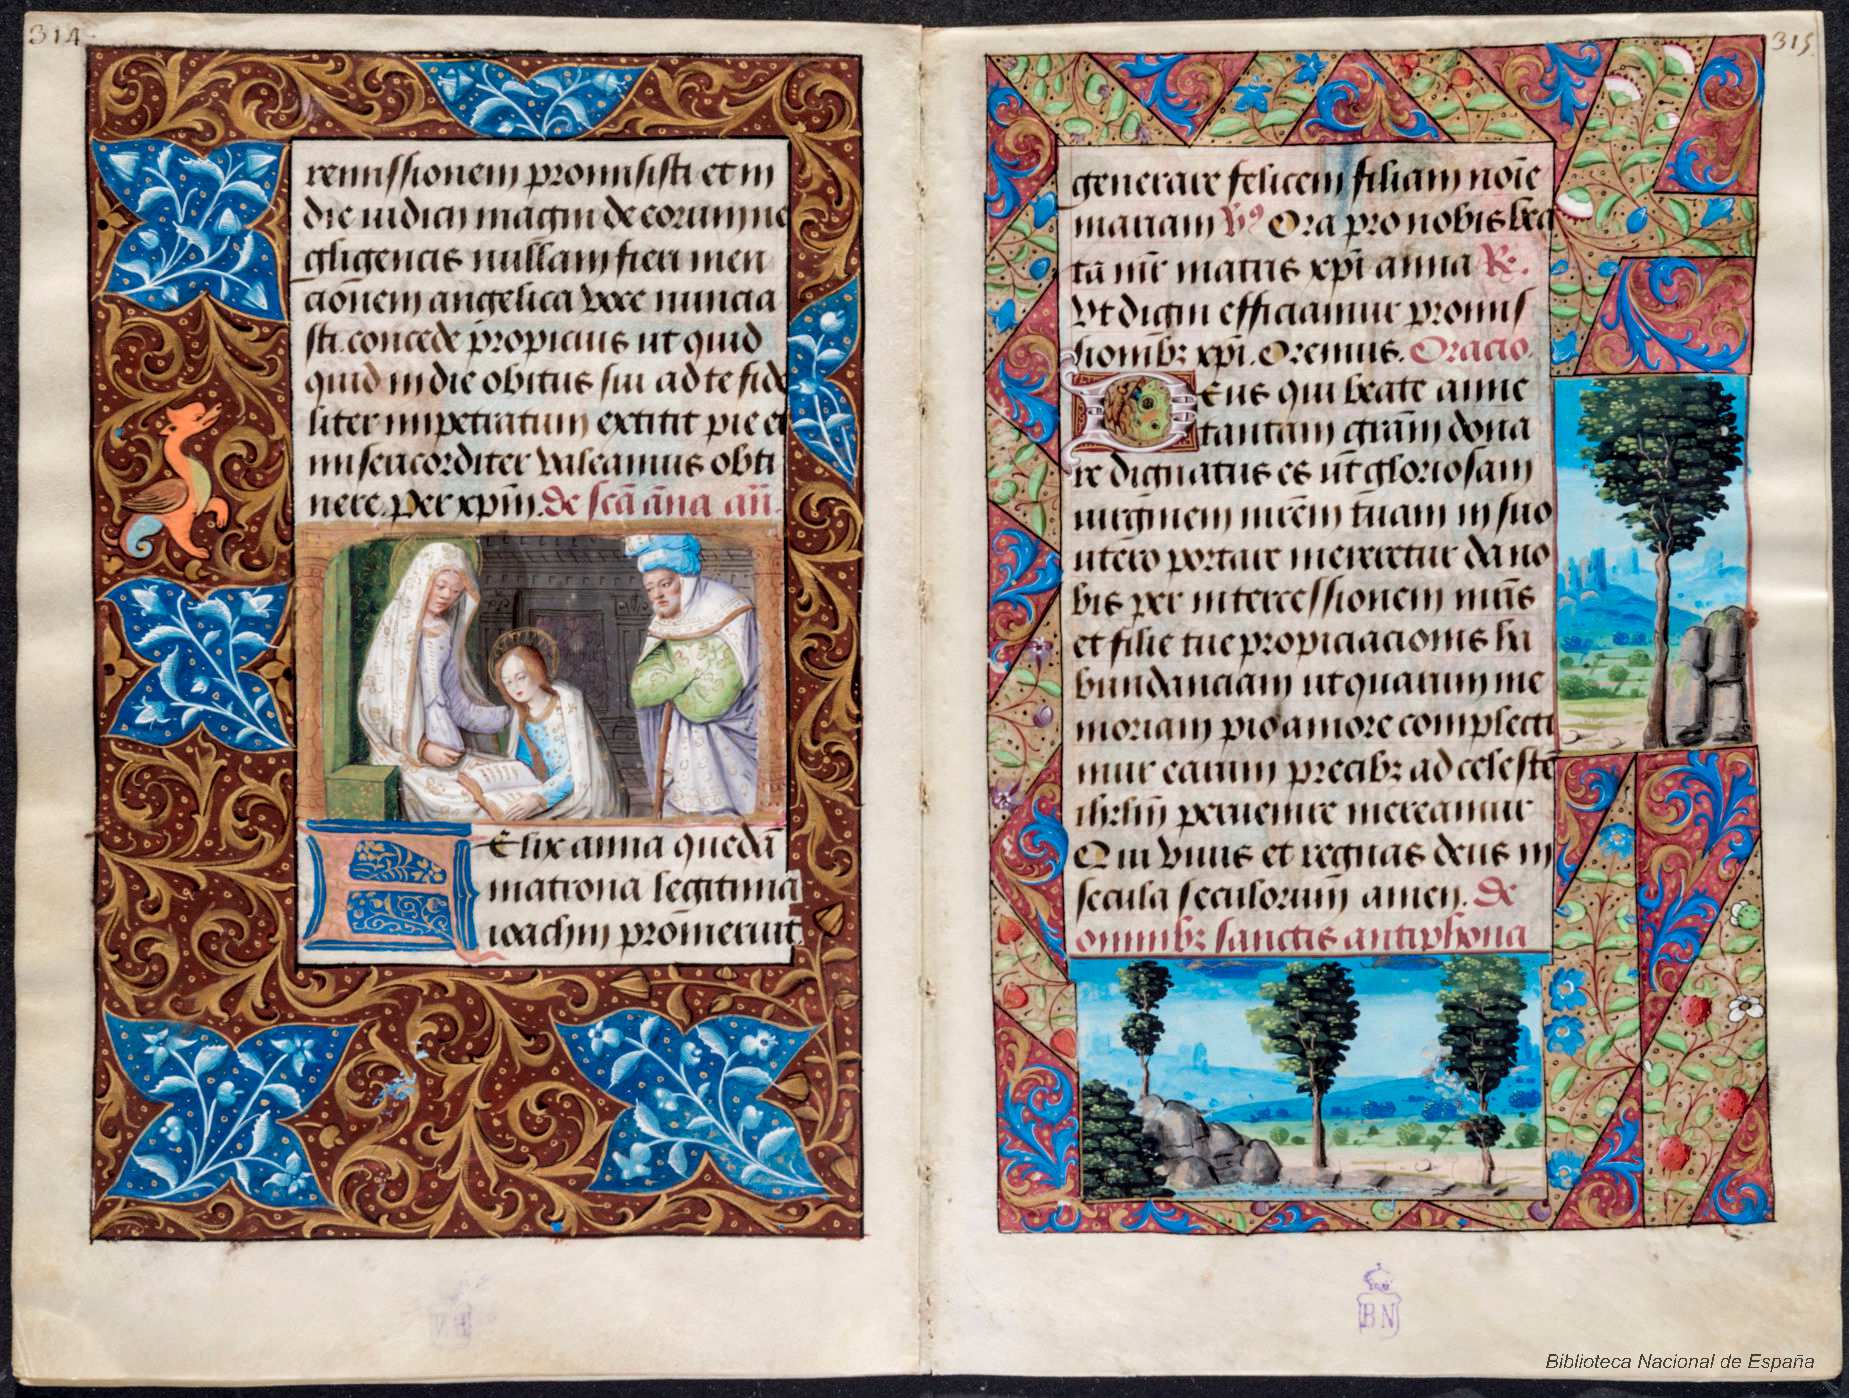 314
remissionem promisisti et in
die iudicii magni de eorum ne
gligenciis nullam fieri men
cionem angelica voce nuncia
sti. concede propicius ut quid
quid in die obitus sui ad te fide
liter impetratum extitit pie et
misericorditer valeamus obti
nere. per xp̄m. de sc̄ā āna añ.
Elix anna quedā
matrona legitima
ioachin promeruit
315
generare felicem filiam noīe
mariam V̓ Ora pro nobis bea
ta mr̄ matris xp̄i anna R.
Vt digni efficiamur promis
sionibꝫ xp̄i. Oremus. Oracio.
Deus qui beate anne
tantam grām dona
re dignatus es ut gloriosam
uirginem mr̄em tuam in suo
utero portare mereretur da no
bis per intercessionem mr̄is
et filie tue propiciacionis ha
bundanciam ut quarum me
moriam pio amore complecti
mur earum precibꝫ ad celestē
ihrlm̄ peruenire mereamur
Qui viuis et regnas deus in
secula seculorum amen. de
omnibꝫ sanctis antiphona
BN
Biblioteca Nacional de España